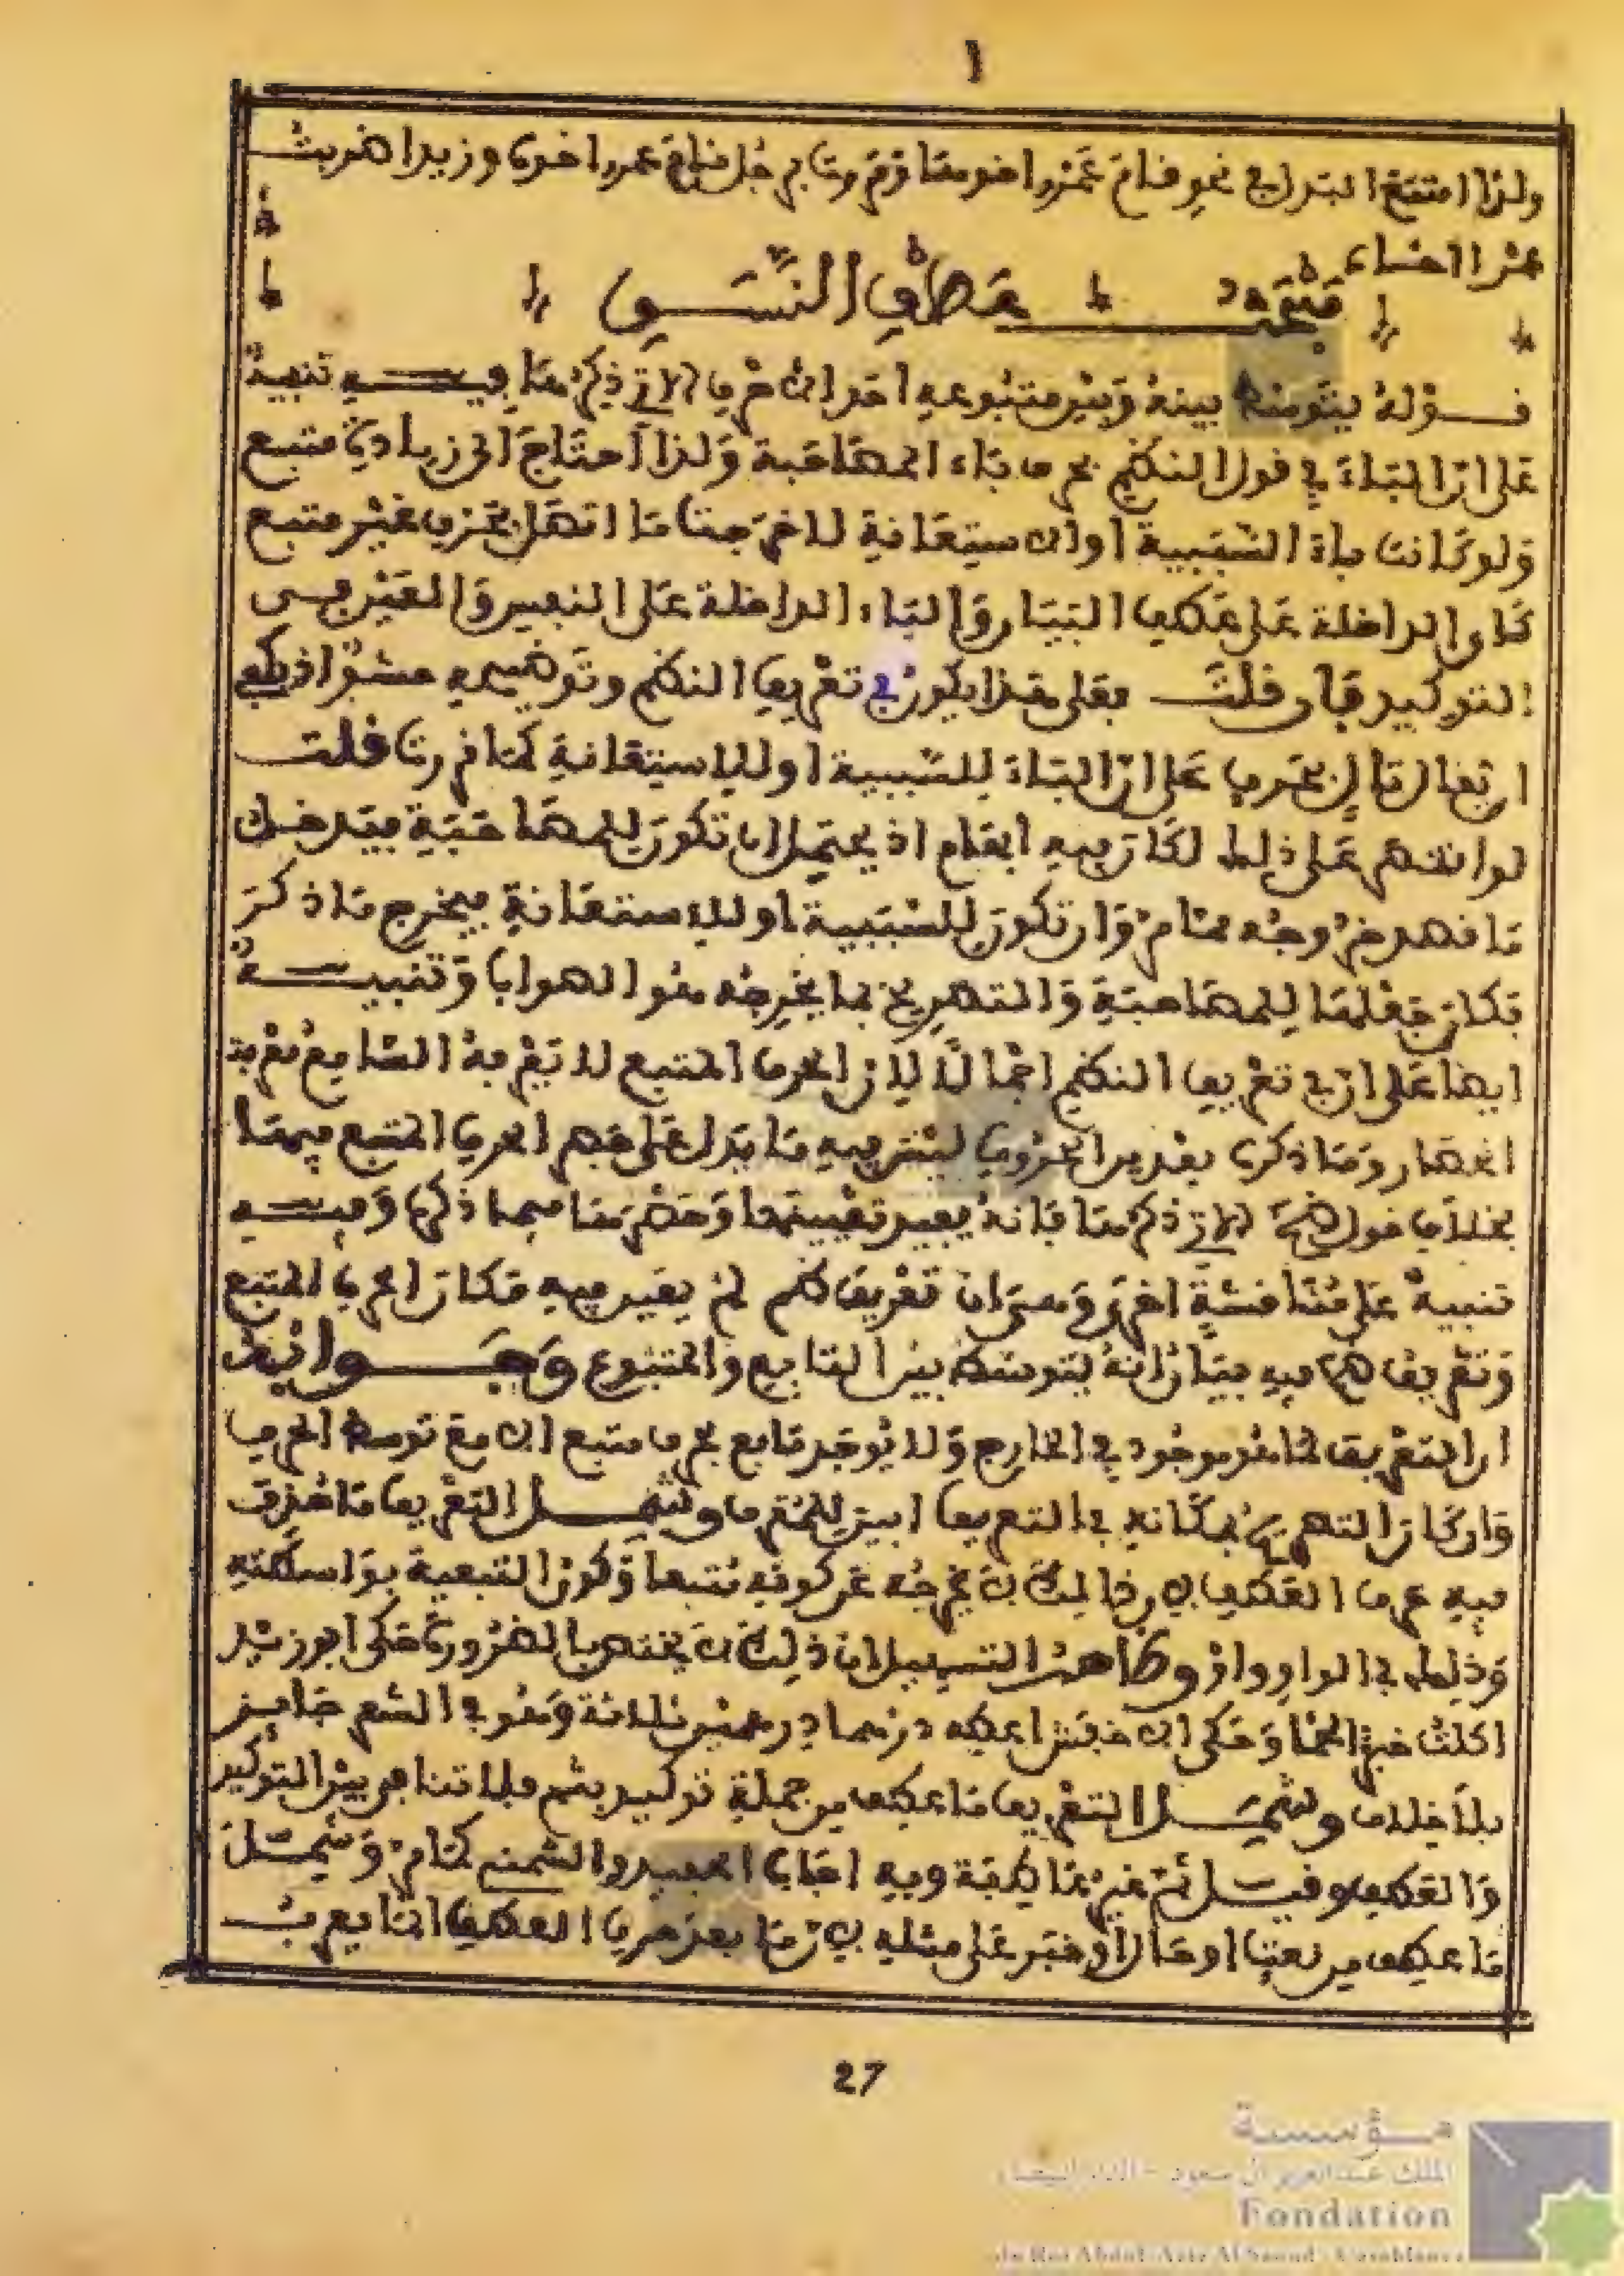 ا
ولذا امتنع البدل في نحو قام عمرو اخوها ومررت برجل قام عمرو اخوه وزيدا ضربت
عمرا اخاه
مبحث عطف النسق
قوله يتوسط بينه وبين متبوعه احد الاحرف الاتي ذكرها فيه تنبيه
على ان الباء في قول النظم بحرف باء المصاحبة ولذا احتاج الى زيادة متبع
ولو كانت باء السببية او الاستعانة لاخرجت ما اتصل بحرف غير متبع
كاي الداخلة على عطف البيان والباء الداخلة على النفس والعين في
التوكيد فان قلت فعلى هذا يكون في تعريف النظم وتوضيحه حشو اذ
تال بحرف على ان الباء للسببية او للاستعانة كما قررت قلت
لو اقتصر على ذلك لكان فيه ابهام اذ يحتمل ان تكون للمصاحبة فيدخل
ما قصد خروجه مما مر وان تكون للسببية او للاستعانة فيخرج ما ذكر
فكان جعلها للمصاحبة والتصريح بما يخرجه هو الصواب وتنبيه
ايضا على ان في تعريف النظم اجمالا لان الحرف المتبع لا يعرفه السامع
وما ذكره بعد من الحروف ليس فيه ما يدل على الحرف المتبع فيها
بخلاف قول الاتي ذكرها فانه يفيد تعيينها وحصرها فيما ذكر وفيه
تنبيه على مناقشة اخرى وهي ان تعريف النظم لم يفيد فيه مكان الحرف المتبع
وتعريف فيه بيان انه يتوسط بين التابع والمتبوع وجوابه
ان التعريف لما هو موجود في الخارج ولا يوجد تابع بحرف متبع الا مع توسط الحرف
وان كان التصريح بمكانه في التعريف ابين للمعرف وشمل التعريف ما حذف
فيه حرف العطف لان ذلك لا يخرجه عن كونه متبعا وكون التبعية بواسطته
وذلك في الواو واو وظاهر التسهيل ان ذلك لا يختص بالضرورة حكى ابو زيد
اكلت خبزا لحما وحكى الاخفش اعطه درهما درهمين ثلاثة وهو في الشعر جايز
بلا خلاف وشمل التعريف ما عطف من جملة توكيد بثم فلا تنافي بين التوكيد
والعطف وقيل ثم غير عاطفة وبه اجاب الحفيد والشمني كما مر وشمل
ما عطف من نعت او حال او خبر على مثله لان ما بعد حرف العطف انما يعرب
27
مؤسسة
الملك عبد العزيز آل سعود - الدار البيضاء
Fondation
du Roi Abdul-Aziz Al Saoud - Casablanca